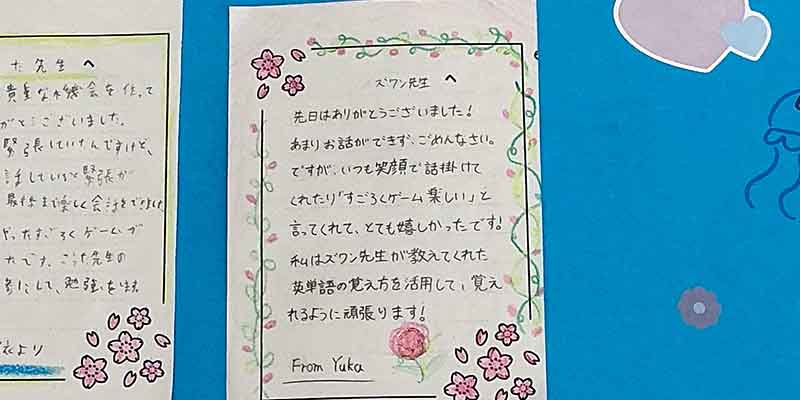 先生へ
貴重な機会を作って
がとうございました。
緊張していたんですけど、
話していると緊張が
最後まで楽しく会話をできました
やったすごろくゲームが
たです。
先生の
にして、勉強をします
より
ズワン先生へ
先日はありがとうございました!
あまりお話ができず、ごめんなさい。
ですが、いつも笑顔で話掛けて
くれたり「すごろくゲーム楽しい」と
言ってくれて、とても嬉しかったです!
私はズワン先生が教えてくれた
英単語の覚え方を活用して、覚え
れるように頑張ります!
From Yuka